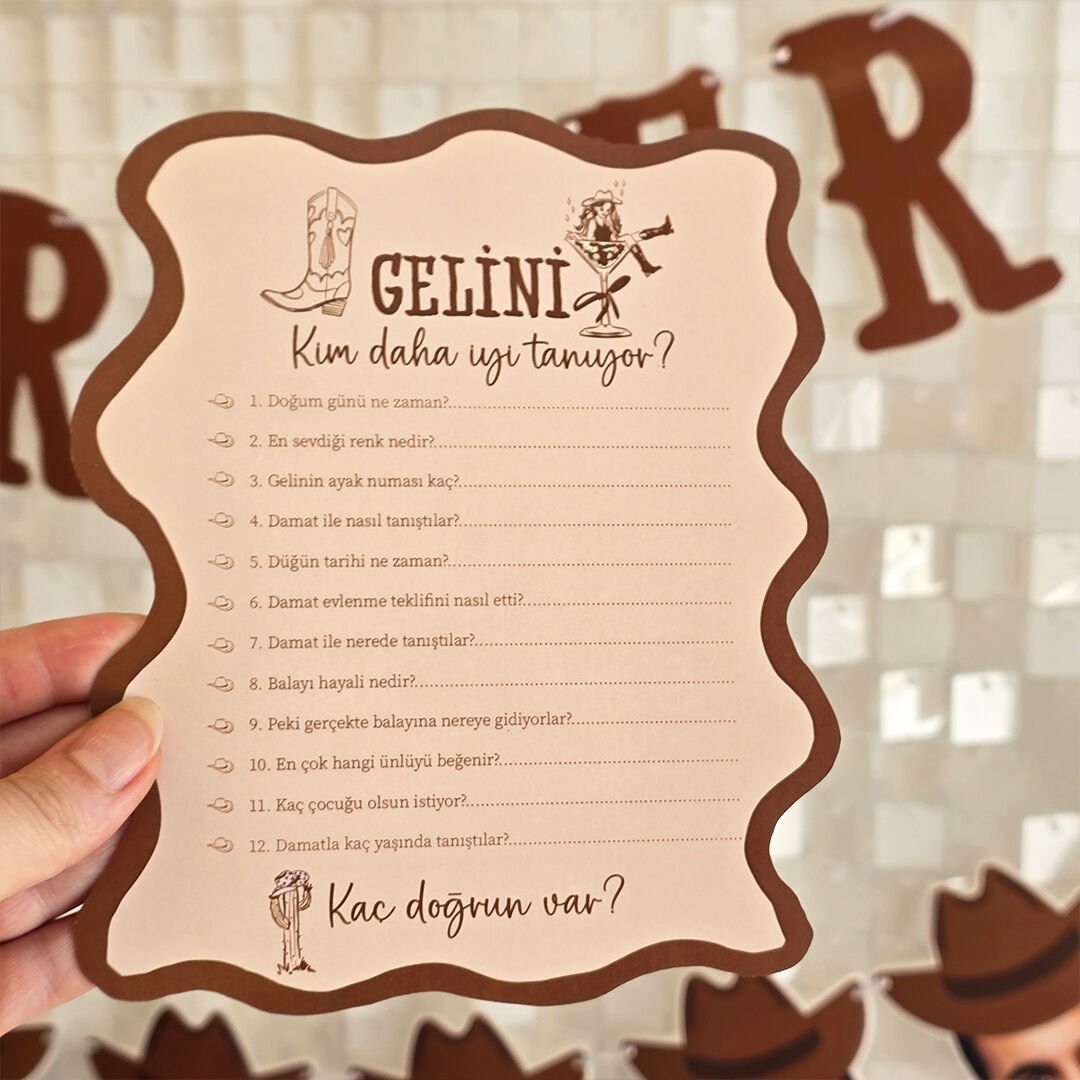 R
R
GELİNİ
Kim daha iyi tanıyor?
1. Doğum günü ne zaman?
2. En sevdiği renk nedir?
3. Gelinin ayak numası kaç?
4. Damat ile nasıl tanıştılar?
5. Düğün tarihi ne zaman?
6. Damat evlenme teklifini nasıl etti?
7. Damat ile nerede tanıştılar?
8. Balayı hayali nedir?
9. Peki gerçekte balayına nereye gidiyorlar?
10. En çok hangi ünlüyü beğenir?
11. Kaç çocuğu olsun istiyor?
12. Damatla kaç yaşında tanıştılar?
Kaç doğrun var?